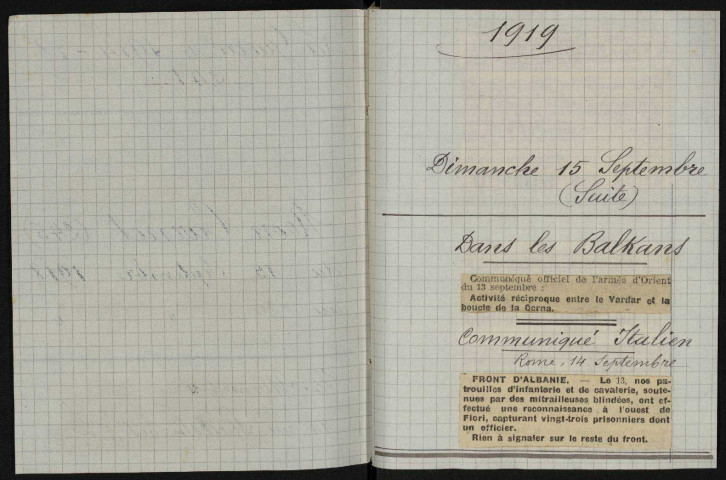 1919
Dimanche 15 Septembre
(Suite)
Dans les Balkans
Communiqué officiel de l'armée d'Orient
du 13 septembre :
Activité réciproque entre le Vardar et la
boucle de la Cerna.
Communiqué Italien
Rome, 14 Septembre
FRONT D'ALBANIE. — Le 13, nos pa-
trouilles d'infanterie et de cavalerie, soute-
nues par des mitrailleuses blindées, ont ef-
fectué une reconnaissance à l'ouest de
Fieri, capturant vingt-trois prisonniers dont
un officier.
Rien à signaler sur le reste du front.